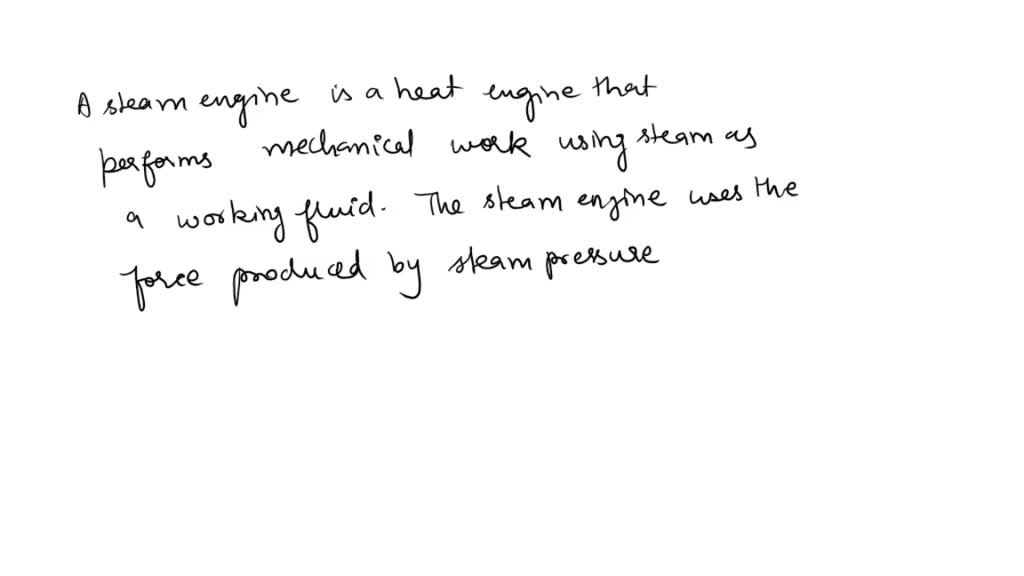 A steam engine is a heat engine that
performs mechanical work using steam as
a working fluid. The steam engine uses the
force produced by steam pressure